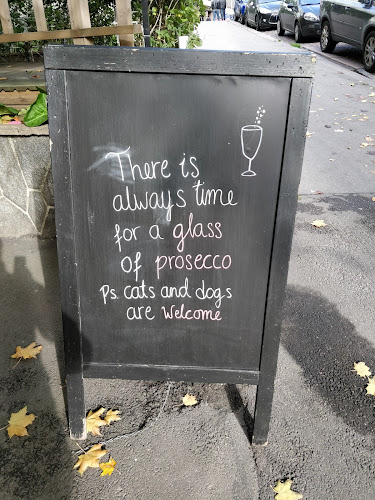 There is
always time
for a glass
of prosecco
Ps. cats and dogs
are welcome